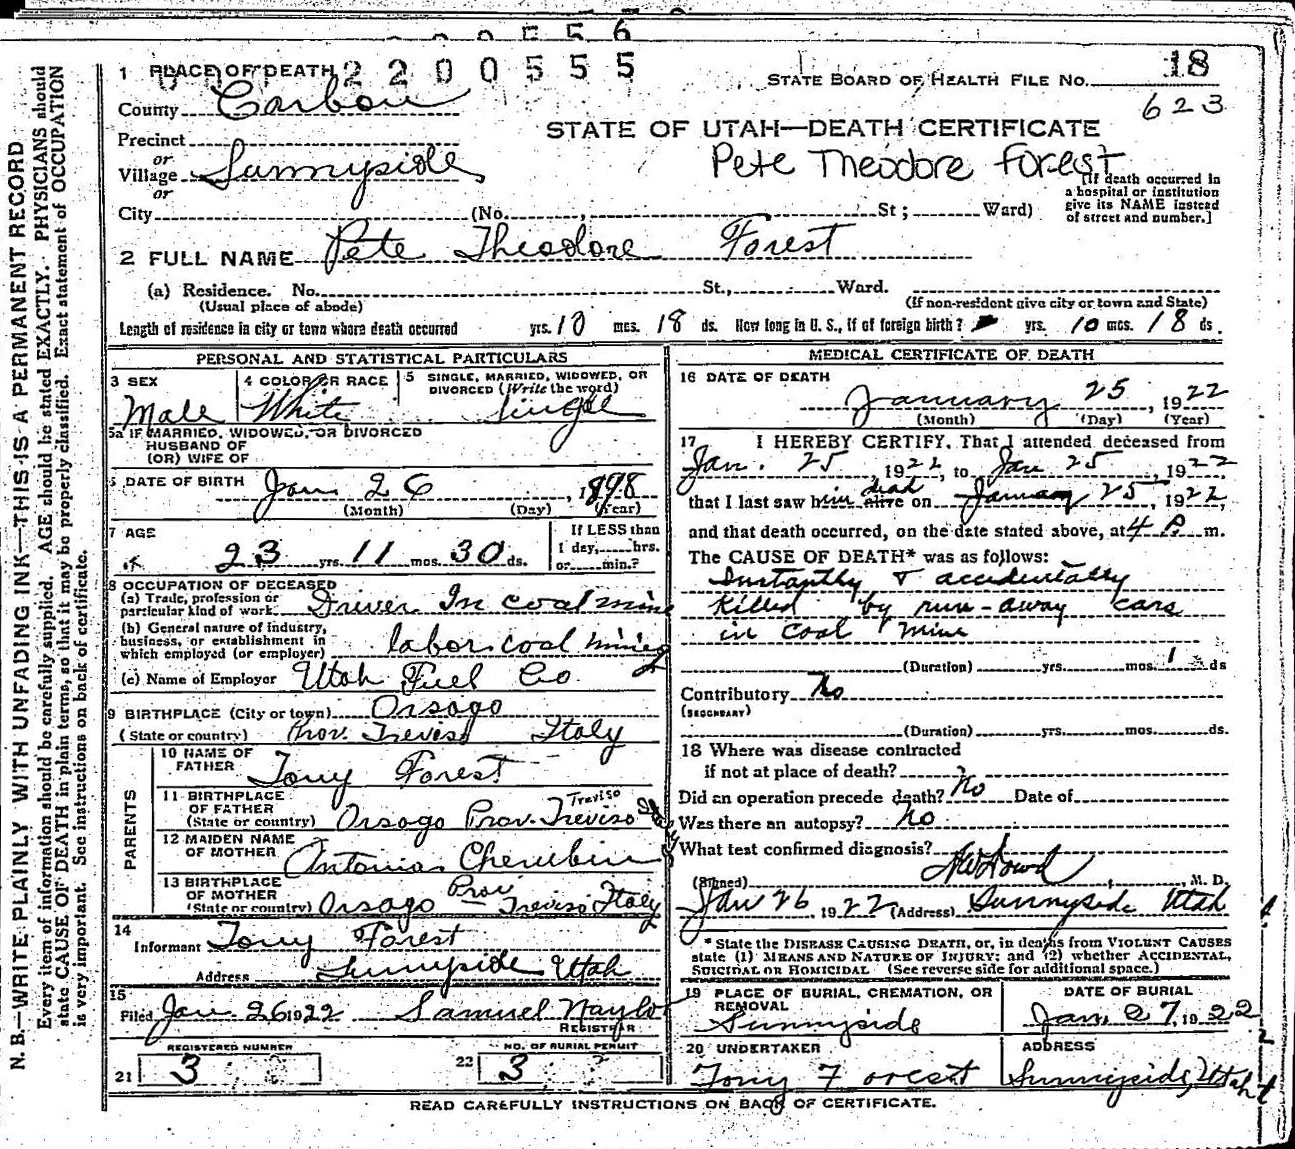 5 5 6
2 2 0 0 5 5 5
1 PLACE OF DEATH
STATE BOARD OF HEALTH FILE NO. 18
623
County Carbon
STATE OF UTAH—DEATH CERTIFICATE
Precinct
Pete Theodore Forest
or
Village Sunnyside
or
[If death occurred in a hospital or institution give its NAME instead of street and number.]
City (No. , St; Ward)
2 FULL NAME Pete Theodore Forest
(a) Residence. No. St., Ward.
(Usual place of abode) (If non-resident give city or town and State)
Length of residence in city or town where death occurred yrs. 10 mos. 18 ds. How long in U. S., if of foreign birth? yrs. 10 mos. 18 ds.
PERSONAL AND STATISTICAL PARTICULARS
3 SEX Male
4 COLOR OR RACE White
5 SINGLE, MARRIED, WIDOWED, OR DIVORCED (Write the word) Single
5a IF MARRIED, WIDOWED, OR DIVORCED
HUSBAND OF
(OR) WIFE OF
6 DATE OF BIRTH Jan 26, 1898
(Month) (Day) (Year)
7 AGE 23 yrs. 11 mos. 30 ds.
If LESS than
1 day, hrs.
or min.?
8 OCCUPATION OF DECEASED
(a) Trade, profession or
particular kind of work Driver In coal mine
(b) General nature of industry,
business, or establishment in
which employed (or employer) labor coal mining
(c) Name of Employer Utah Fuel Co.
9 BIRTHPLACE (City or town) Orsago
(State or country) Prov. Treviso Italy
PARENTS
10 NAME OF
FATHER Tony Forest
11 BIRTHPLACE
OF FATHER
(State or country) Orsago Prov. Treviso Italy
Treviso
12 MAIDEN NAME
OF MOTHER Antonia Cherubin
13 BIRTHPLACE
OF MOTHER
(State or country) Orsago Prov Treviso Italy
14
Informant Tony Forest
Address Sunnyside Utah
15
Filed Jan. 26 1922 Samuel Naylor
REGISTRAR
REGISTERED NUMBER
21 3
NO. OF BURIAL PERMIT
22 3
MEDICAL CERTIFICATE OF DEATH
16 DATE OF DEATH
January 25, 1922
(Month) (Day) (Year)
17 I HEREBY CERTIFY, That I attended deceased from
Jan. 25, 1922, to Jan 25, 1922
that I last saw him dead alive on January 25, 1922,
and that death occurred, on the date stated above, at 4 P. m.
The CAUSE OF DEATH* was as follows:
Instantly & accidentally
killed by run-away cars
in coal mine
(Duration) yrs. mos. 1 ds
Contributory No
(SECONDARY)
(Duration) yrs. mos. ds.
18 Where was disease contracted
if not at place of death?
Did an operation precede death? No Date of
Was there an autopsy? No
What test confirmed diagnosis?
(Signed) , M. D.
Jan 26, 1922 (Address) Sunnyside Utah
* State the DISEASE CAUSING DEATH, or, in deaths from VIOLENT CAUSES
state (1) MEANS AND NATURE OF INJURY; and (2) whether ACCIDENTAL,
SUICIDAL OR HOMICIDAL (See reverse side for additional space.)
19 PLACE OF BURIAL, CREMATION, OR
REMOVAL
Sunnyside
DATE OF BURIAL
Jan. 27, 1922
20 UNDERTAKER
Tony Forest
ADDRESS
Sunnyside, Utah
READ CAREFULLY INSTRUCTIONS ON BACK OF CERTIFICATE.
N. B.—WRITE PLAINLY WITH UNFADING INK—THIS IS A PERMANENT RECORD
Every item of information should be carefully supplied. AGE should be stated EXACTLY. PHYSICIANS should
state CAUSE OF DEATH in plain terms, so that it may be properly classified. Exact statement of OCCUPATION
is very important. See instructions on back of certificate.